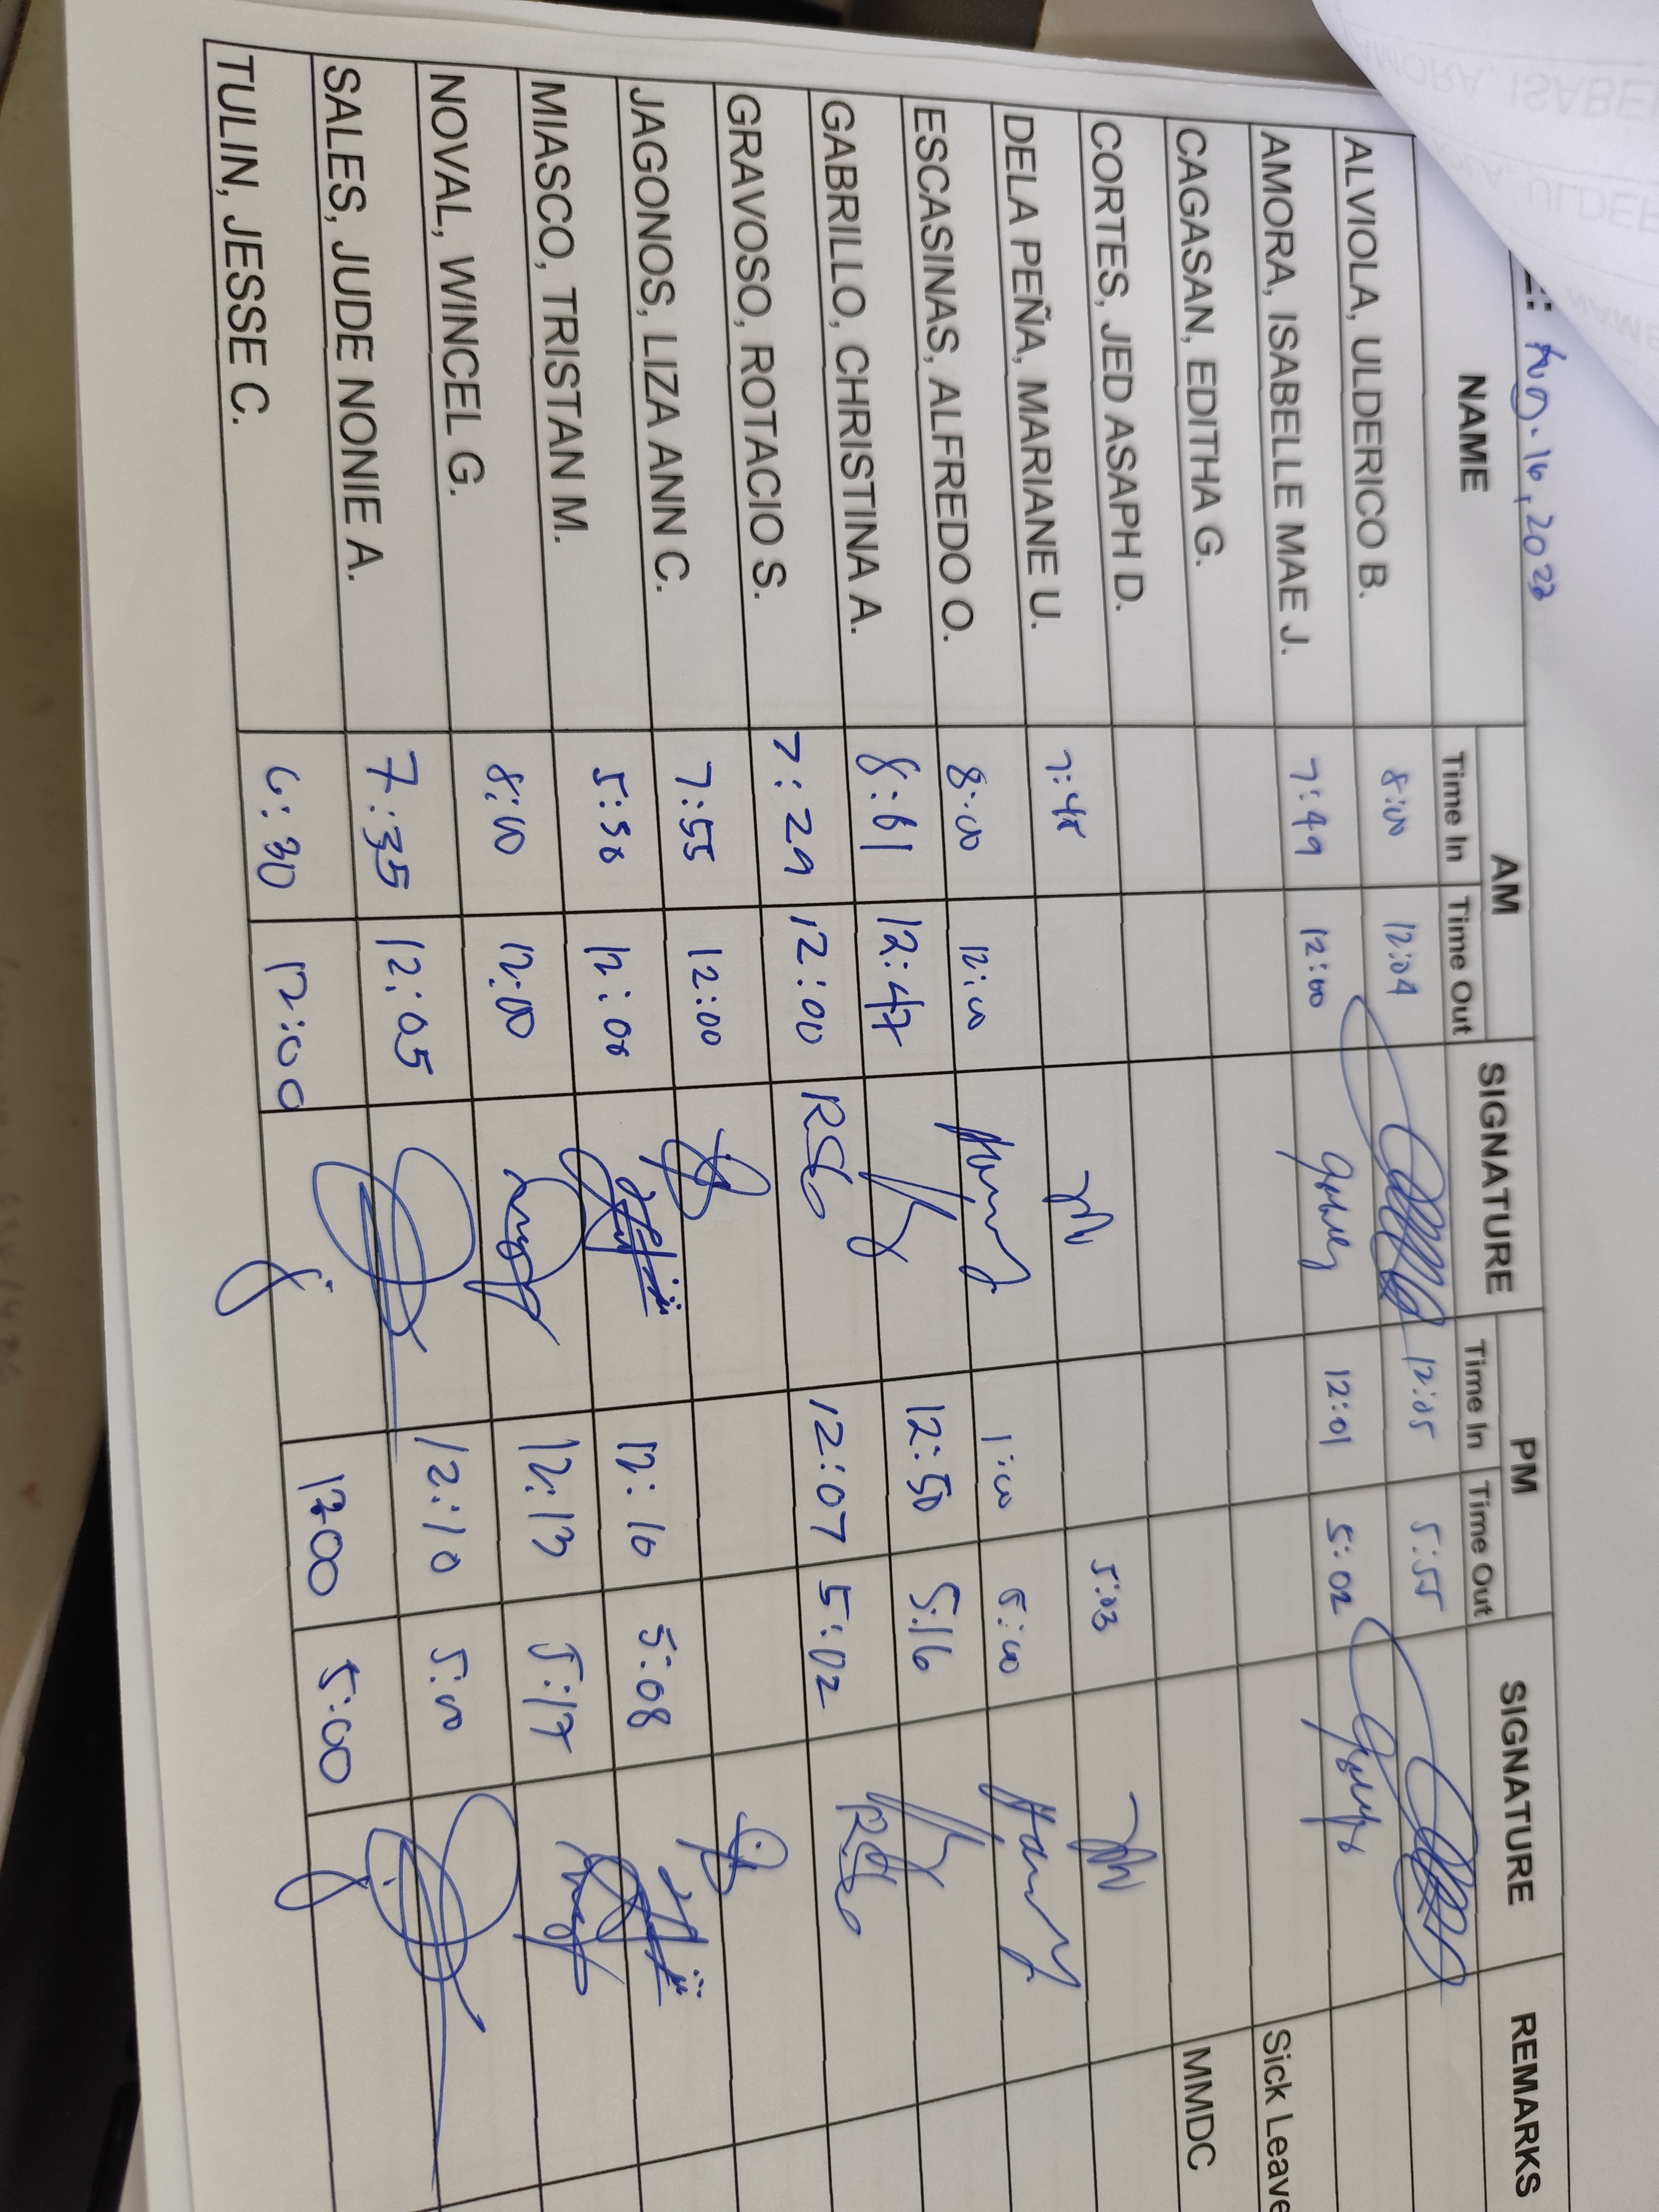 E: Aug. 16, 2022
NAME AM SIGNATURE PM SIGNATURE REMARKS
Time In Time Out Time In Time Out
ALVIOLA, ULDERICO B. 8:00 12:04 12:05 5:55
AMORA, ISABELLE MAE J. 7:49 12:00 12:01 5:02
CAGASAN, EDITHA G. Sick Leave
CORTES, JED ASAPH D. MMDC
DELA PEÑA, MARIANE U. 7:45 5:03
ESCASINAS, ALFREDO O. 8:00 12:00 1:00 5:00
GABRILLO, CHRISTINA A. 8:01 12:47 12:50 5:16
GRAVOSO, ROTACIO S. 7:29 12:00 12:07 5:02
JAGONOS, LIZA ANN C. 7:55 12:00
MIASCO, TRISTAN M. 12:00 12:10 5:08
NOVAL, WINCEL G. 8:00 12:00 12:13 5:17
SALES, JUDE NONIE A. 7:35 12:05 12:10 5:00
TULIN, JESSE C. 6:30 12:00 5:00